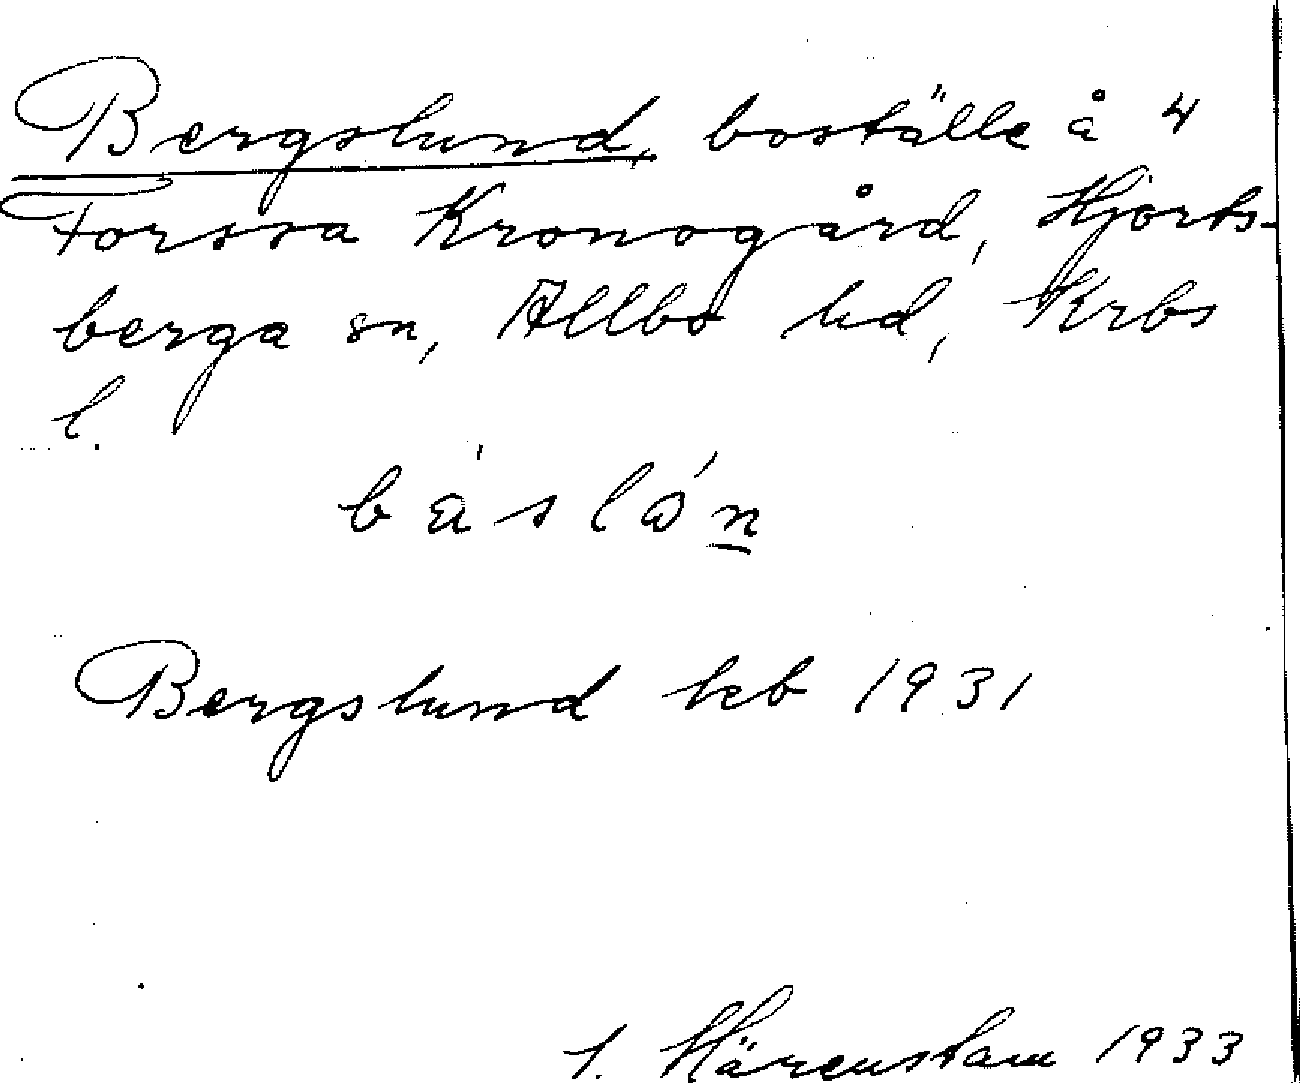 Bergslund, boställe å 4
Forssa Kronogård, Hjorts-
berga sn, Allbo hd, Krbs
l.
Bergslund hcb 1931
Härenstam 1933